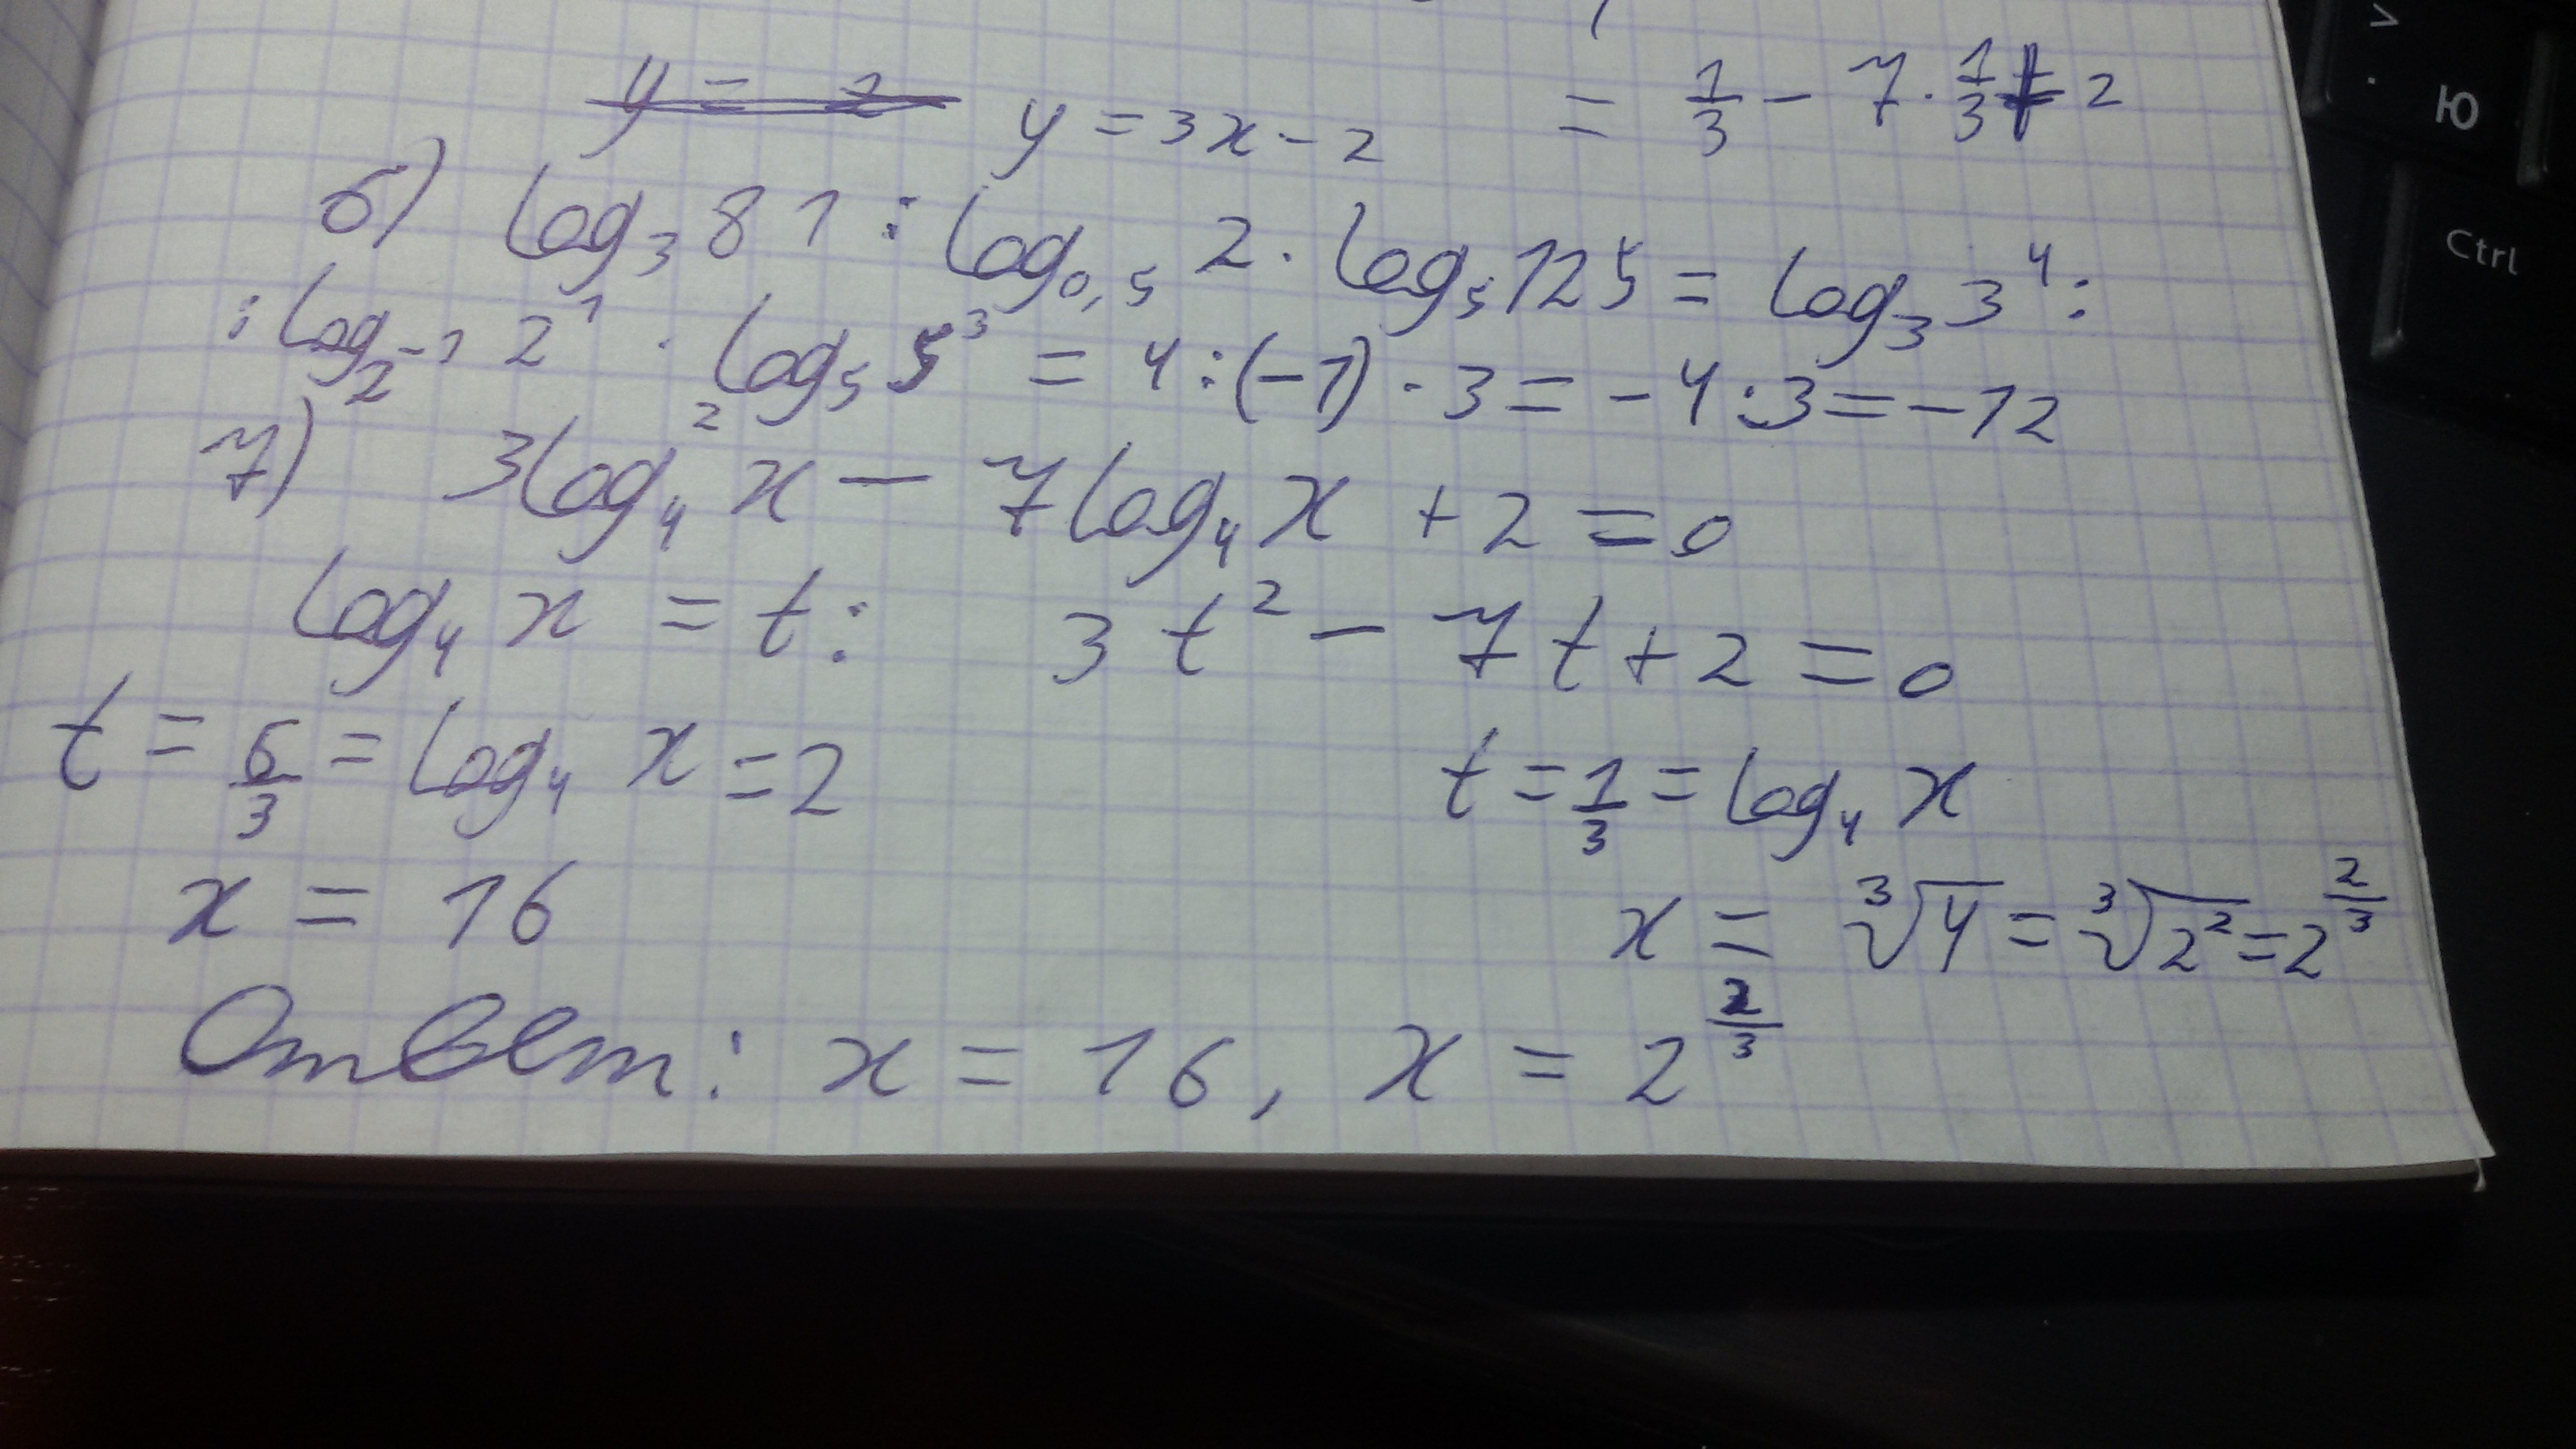 y = 2 y = 3x - 2 = 1/3 - 7 · 1/3 + 2
6) log₃ 81 : log₀,₅ 2 · log₅ 125 = log₃ 3⁴ :
: log₂₋₁ 2¹ · log₅ 5³ = 4 : (-1) · 3 = -4 : 3 = -12
7) 3log₄² x - 7log₄ x + 2 = 0
log₄ x = t : 3t² - 7t + 2 = 0
t = 6/3 = log₄ x = 2 t = 1/3 = log₄ x
x = 16 x = ³√4 = ³√2² = 2^(2/3)
Ответ: x = 16, x = 2^(2/3)
Ю
Ctrl